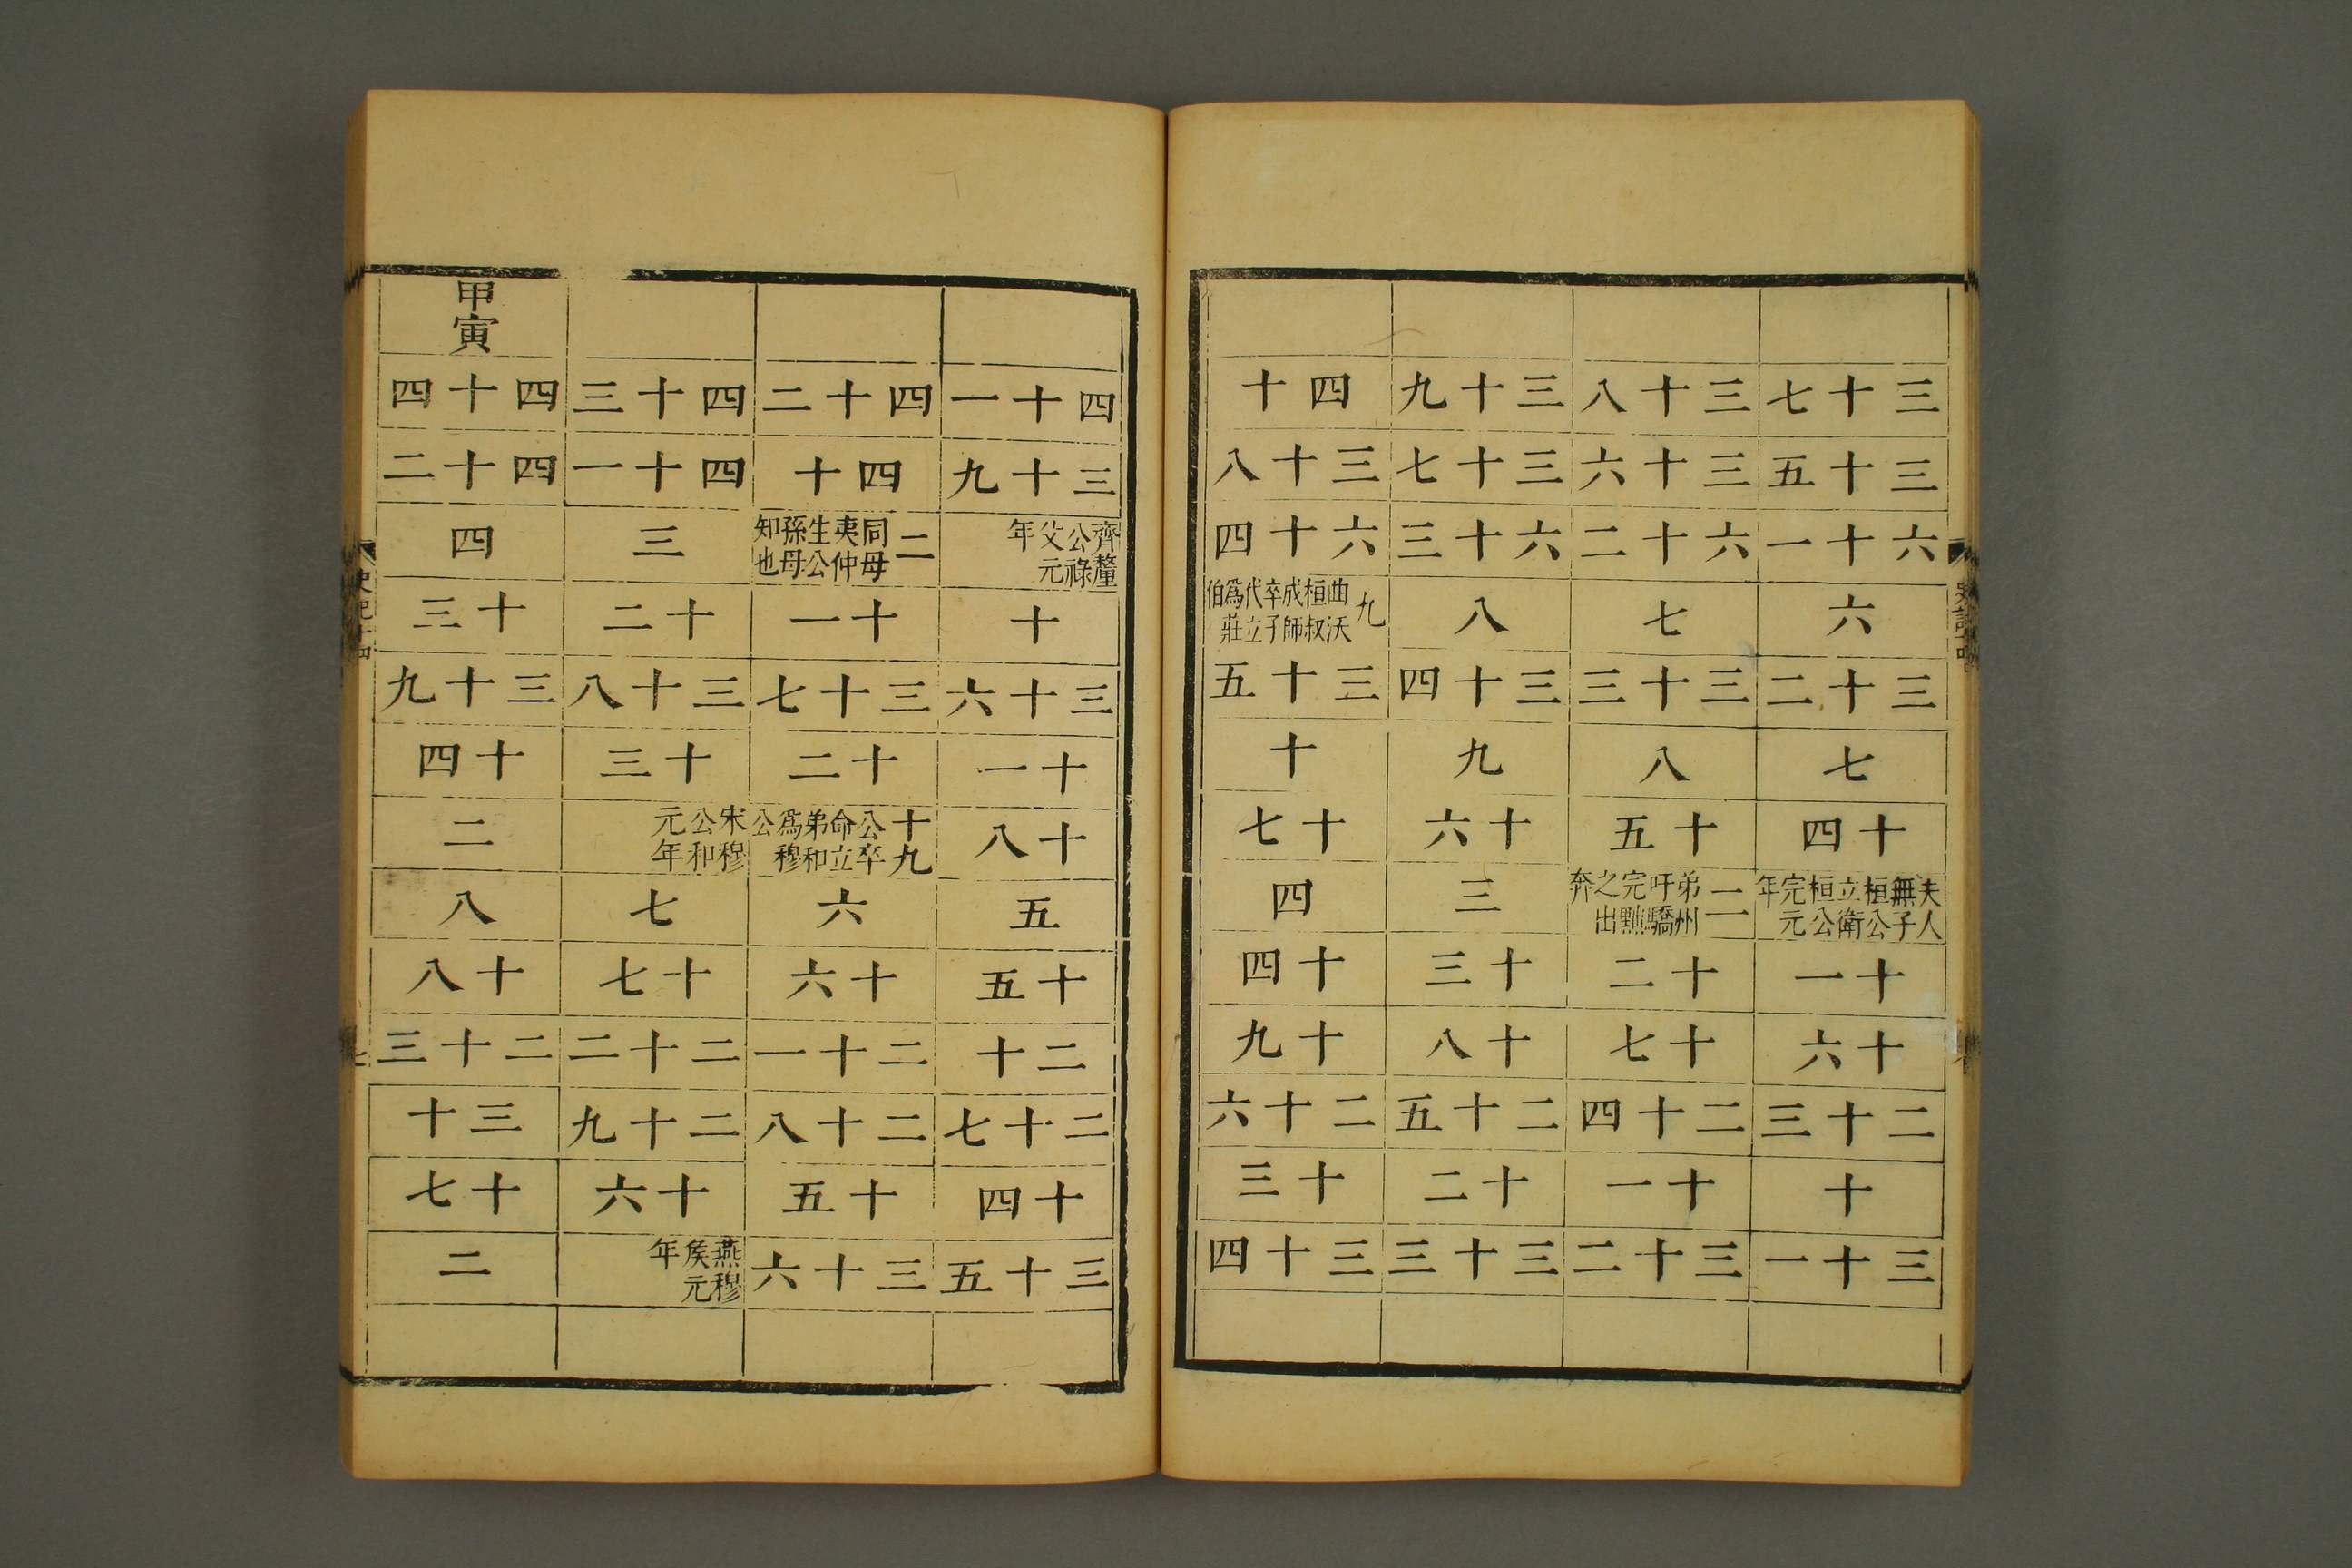 三十七
三十五
六十一
六
三十二
七
十四
夫人無子桓公立衛桓公完元年
十一
十六
二十三
十
三十一
三十八
三十六
六十二
七
三十三
八
十五
二弟州吁驕完黜之出奔
十二
十七
二十四
十一
三十二
三十九
三十七
六十三
八
三十四
九
十六
三
十三
十八
二十五
十二
三十三
四十
三十八
六十四
九曲沃桓叔成師卒子代立爲莊伯
三十五
十
十七
四
十四
十九
二十六
十三
三十四
四十一
三十九
齊釐公祿父元年
十
三十六
十一
十八
五
十五
二十
二十七
十四
三十五
四十二
四十
二同母夷仲生公孫母知也
十一
三十七
十二
十九公卒命立弟和爲穆公
六
十六
二十一
二十八
十五
三十六
四十三
四十一
三
十二
三十八
十三
宋穆公和元年
七
十七
二十二
二十九
十六
燕穆侯元年
甲寅
四十四
四十二
四
十三
三十九
十四
二
八
十八
二十三
三十
十七
二
史記十四